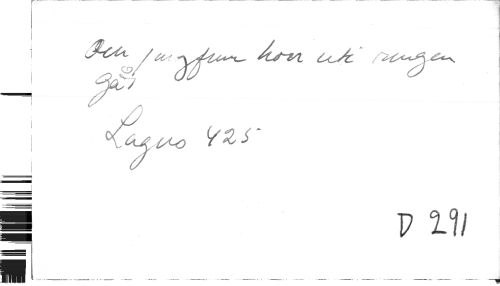 Den jungfrun hon uti ringen
går
Lagus 425
D 291